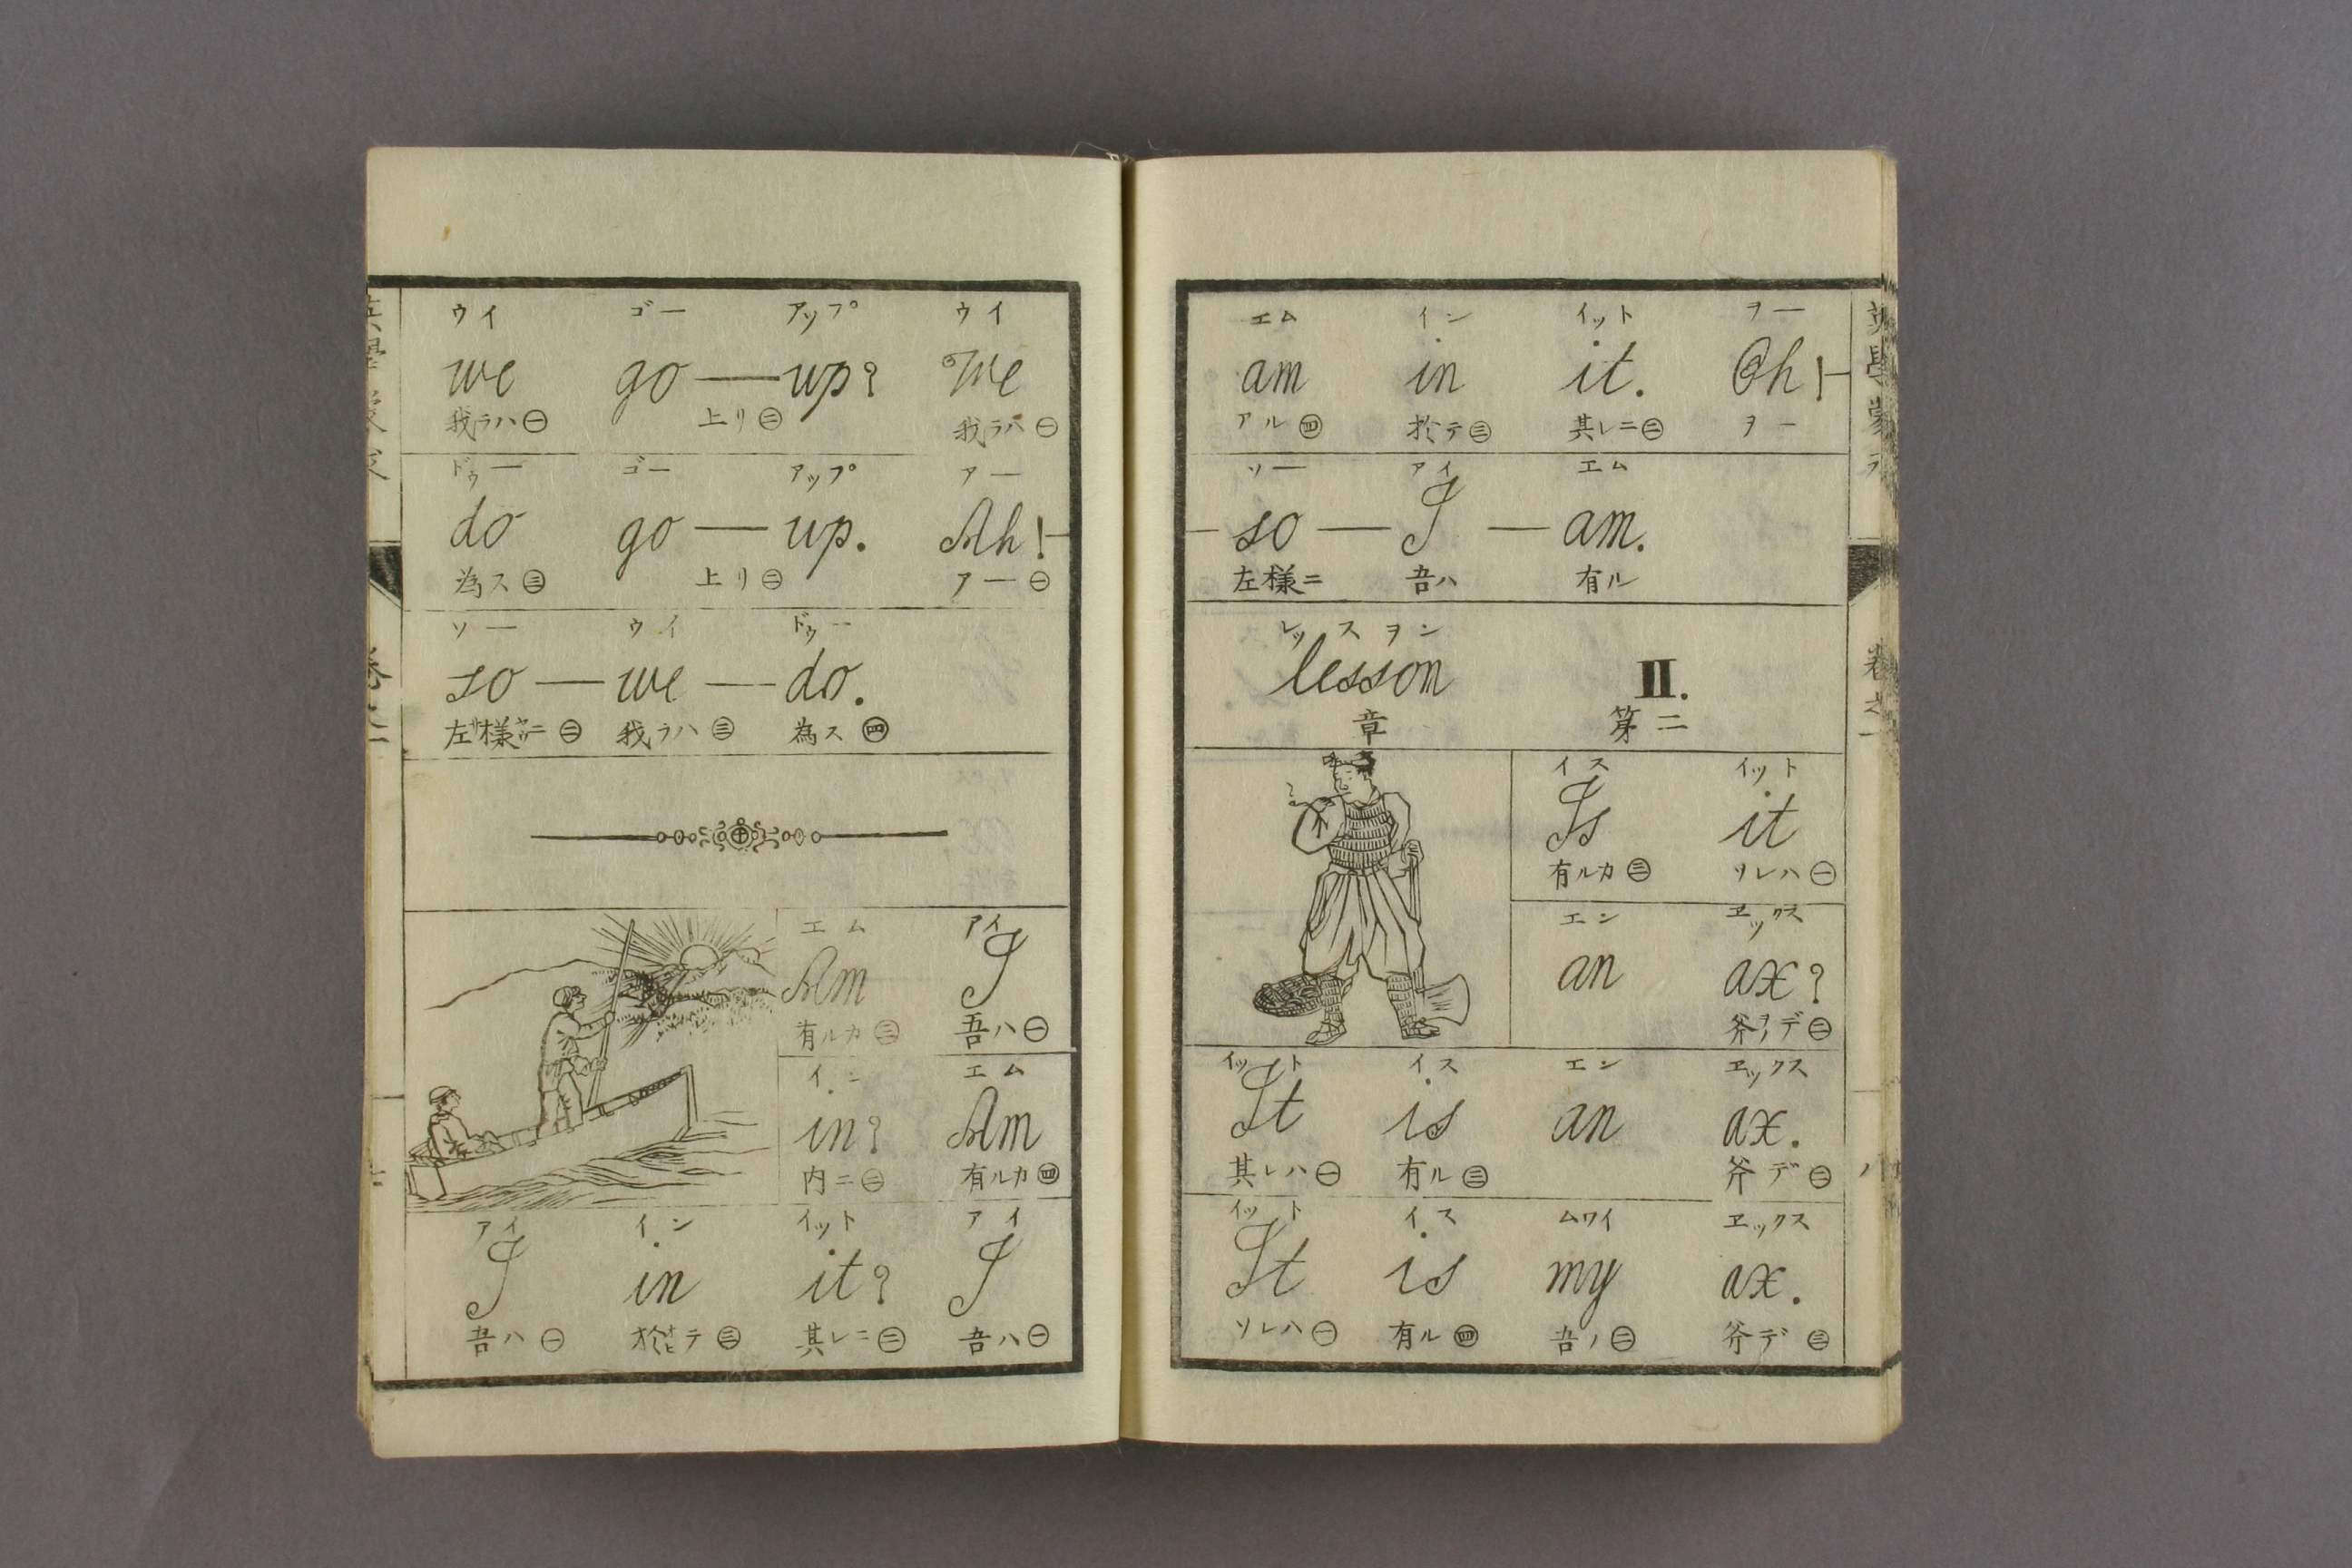 ウイ ゴー アップ ウイ
we go — up? We
我ラハ㊀ 上リ㊁ 我ラハ㊀
ドゥー ゴー アップ アー
do go — up. Ah! —
為ス㊂ 上リ㊁ アー㊀
ソー ウイ ドゥー
so — we — do.
左様ニ㊁ 我ラハ㊂ 為ス㊃
エム アイ
Am I
有ルカ㊂ 吾ハ㊀
イン エム
in? Am
内ニ㊁ 有ルカ㊃
アイ イン イット アイ
I in it? I
吾ハ㊀ 於テ㊂ 其レニ㊁ 吾ハ㊀
エム イン イット ヲー
am in it. Oh! —
アル㊃ 於テ㊂ 其レニ㊁ ヲー
ソー アイ エム
— so — I — am.
左様ニ 吾ハ 有ル
レッスヲン
lesson II.
章 第二
イス イット
Is it
有ルカ㊂ ソレハ㊀
エン ヱックス
an ax?
斧デ㊁
イット イス エン ヱックス
It is an ax.
其レハ㊀ 有ル㊂ 斧デ㊁
イット イス ムワイ ヱックス
It is my ax.
ソレハ㊀ 有ル㊃ 吾ノ㊁ 斧デ㊂